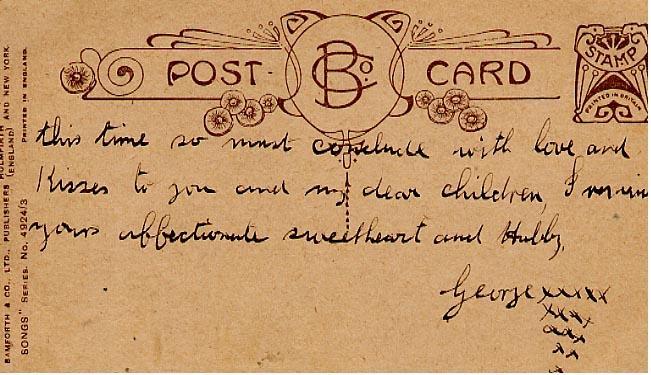 POST CARD
B Co.
STAMP
PRINTED IN BRITAIN
this time so must conclude with love and
Kisses to you and my dear children, I remain
yours affectionate sweetheart and Hubby,
George xxxxx
xxxx
xxx
xx
x
BAMFORTH & CO., LTD., PUBLISHERS HOLMFIRTH (ENGLAND) AND NEW YORK.
SONGS" SERIES. No. 4924/3 PRINTED IN ENGLAND.